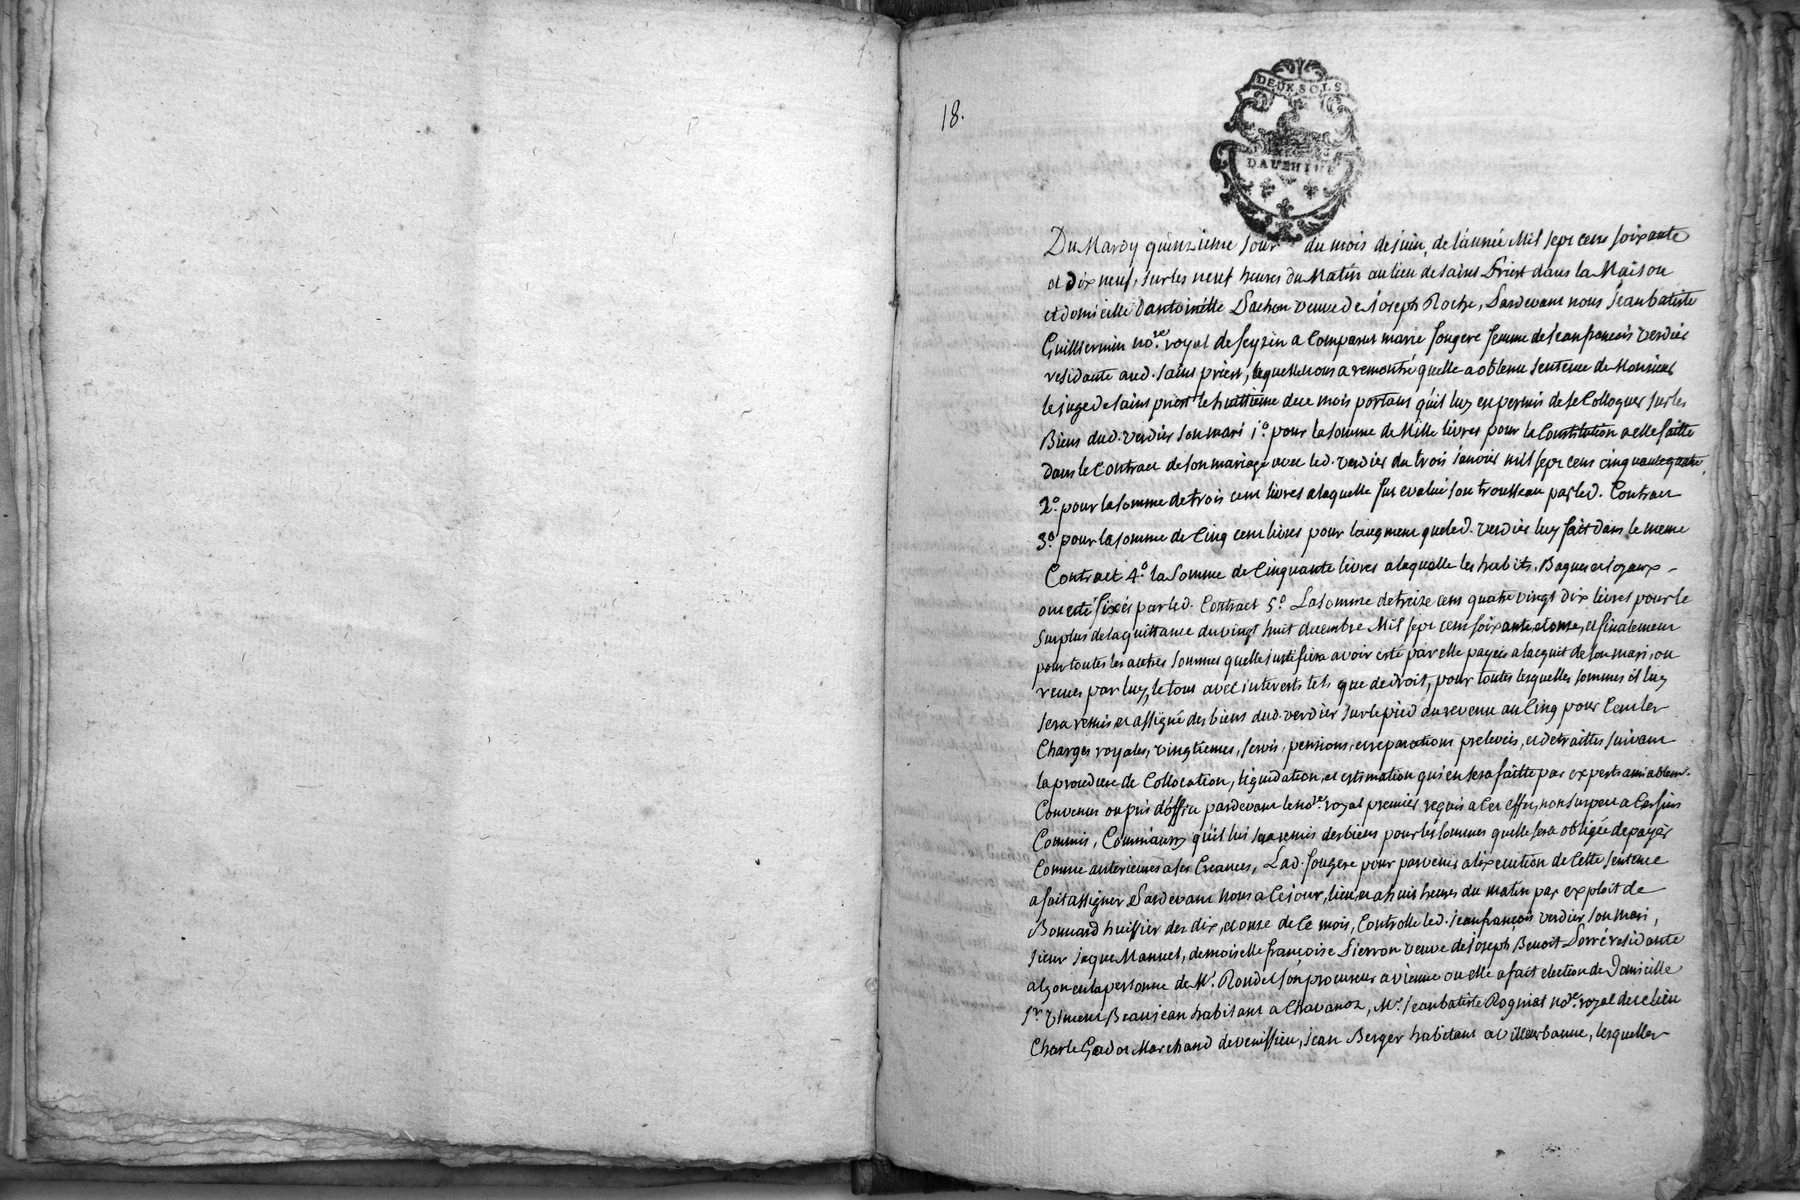 18.
DEUX SOLS
DAUPHINE
Du Mardy quinzieme Jour du mois de juin, de l'année Mil sept cens soixante
et Dix neuf, sur les neuf heures du Matin au lieu de saint Priest dans la Maison
et domicille d'antoinette Pachon veuve de Joseph Roche, Pardevant nous Jean batiste
Guilliermin no.re royal de feyzin a Comparut marie fougere femme de Jean françois verdier
residante aud. saint priest, laquelle nous a remontré quelle a obtenu sentence de Monsieur
le juge de saint priest le huittieme de ce mois portant qu'il luy est permis de se Colloquer sur les
Biens dud. verdier son mari 1.o pour la somme de Mille livres pour la Constitution a elle faitte
dans le Contract de son mariage avec led. verdier du trois janvier mil sept cens cinquante quatre,
2.o pour la somme de trois cent livres a laquelle fut evalué son trousseau par led. Contract
3.o pour la somme de Cinq cent livres pour l'augment que led. verdier luy fait dans le meme
Contract 4.o la Somme de Cinquante livres a laquelle les habits, Bagues et Joyaux
ont esté fixés par led. Contract 5.o La somme de treize cens quatre vingt dix livres pour le
surplus de la quittance du vingt huit decembre Mil sept cens soixante et onse, et finalement
pour toutes les autres sommes quelle justifiera avoir esté par elle payées a l'acquit de son mari, ou
reçues par luy, le tout avec interests tels que de droit, pour toutes lesquelles sommes il luy
sera remis et assigné des biens dud. verdier sur le pied du revenu au Cinq pour Cent les
Charges royales, vingtiemes, servis, pensions, et reparations prelevées, et detraittes suivant
la procedure de Collocation, liquidation, et estimation qui en sera faitte par experts amiablem.t
Convenus ou pris d'office pardevant le no.re royal premier requis a Cet effet, non suspect a Ces fins
Commis, Comm'aussy qu'il lui sera remis des biens pour les sommes quelle sera obligée de payer
Comme anterieures a ses Creances, Lad. fougere pour parvenir a l'execution de Cette sentence
a fait assigner Pardevant nous a Ce jour, lieu, et a huit heures du matin par exploit de
Bonnard huissier des dix, et onse de Ce mois, Controllé led. jean françois verdier son mari,
sieur jaque Manuel, demoiselle françoise Pierron veuve de joseph Benoit Porré residante
a Lyon en la personne de M.r Rondet son procureur a vienne ou elle a fait election de Domicille
S.r Vincent Beaujean habitant a Chavanoz, M.r jean batiste Rogniat no.re royal de ce lieu
Charle Gadot Marchand de venissieu, jean Berger habitant a villeurbanne, lesquelles